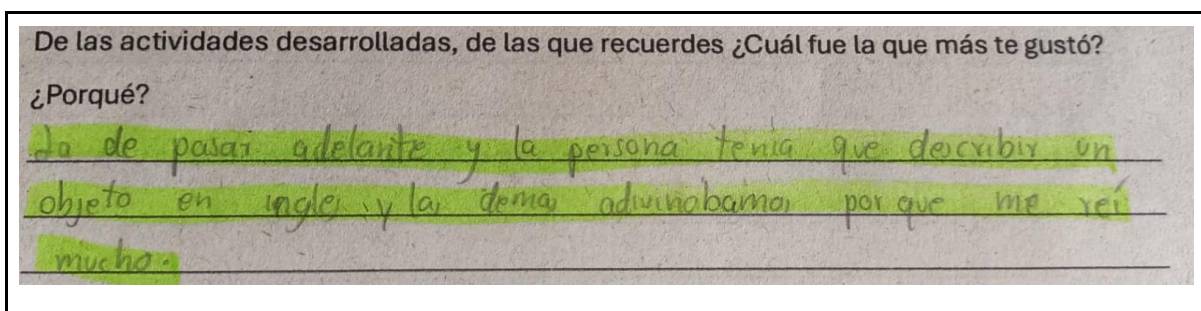 De las actividades desarrolladas, de las que recuerdes ¿Cuál fue la que más te gustó?
¿Porqué?
La de pasar adelante y la persona tenia que describir un
objeto en ingles y las demas adivinabamos por que me reí
mucho.